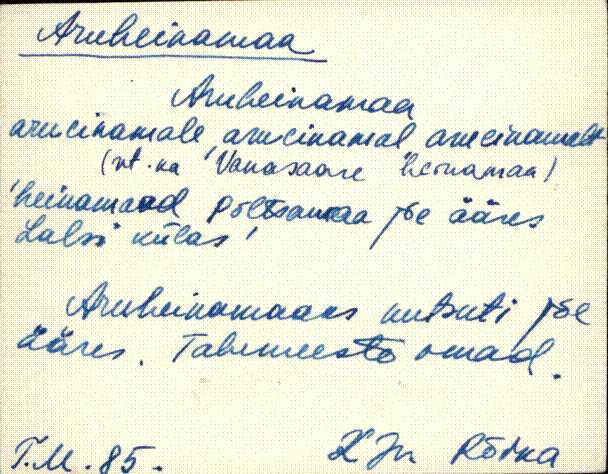 Aruheinamaa
Aruheinamaa
arueinamale, arueinamal arueinamalt
(vt. ka Vanasaare heinamaa)
'heinamaad Põltsamaa jõe ääres
Lalsi külas'
Aruheinamaaks kutsuti jõe
ääres. Talumeeste omad.
T.M. 85. KJn Rõika